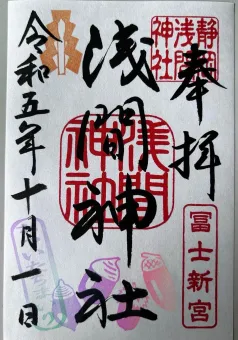 奉拝
静岡浅間神社
浅間神社
浅間神社
富士新宮
令和五年十月一日